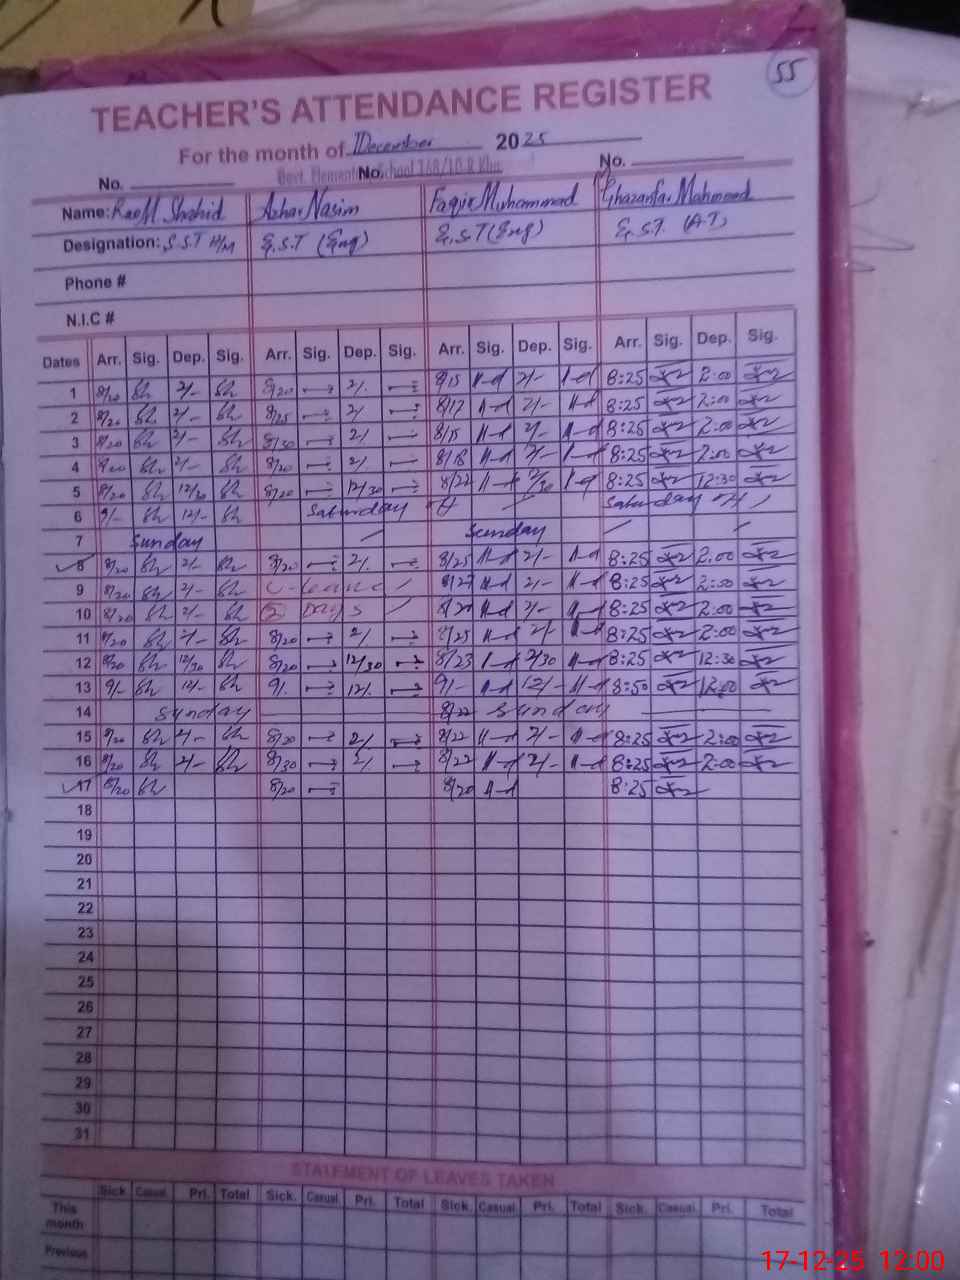 55
TEACHER'S ATTENDANCE REGISTER
For the month of December 2025
No. No. No.
Govt. Elementary School 168/10-R Khw
Name: Rao M Shahid Azhar Nasim Faqir Muhammad Ghazanfar Mahmood
Designation: S.S.T H/M E.S.T (Eng) E.S.T (Eng) E.S.T. (A.T)
Phone #
N.I.C #
Dates Arr. Sig. Dep. Sig. Arr. Sig. Dep. Sig. Arr. Sig. Dep. Sig. Arr. Sig. Dep. Sig.
1 8/20 2/- 8/20 2/. 8/15 2/- 8:25 2:00
2 8/20 2/- 8/25 2/ 8/17 2/- 8:25 2:00
3 8/20 2/- 8/30 2/ 8/15 2/- 8:25 2:00
4 2/- 8/20 2/. 8/18 2/- 8:25 2:00
5 8/20 12/30 8/20 12/30 8/22 12/30 8:25 12:30
6 9/- 12/- Saturday Saturday
7 Sunday Sunday
8 8/20 2/- 8/20 2/. 8/25 2/- 8:25 2:00
9 8/20 2/- C-leave 8/27 2/- 8:25 2:00
10 8/20 2/- 2 Days 8/20 2/- 8:25 2:00
11 8/20 2/- 8/20 2/ 8/25 2/ 8:25 2:00
12 8/20 12/30 8/20 12/30 8/23 8:25 12:30
13 9/- 12/- 9/. 12/. 9/- 12/- 8:50 12:00
14 Sunday 8/22 Sunday
15 8/20 2/- 8/30 2/ 8/22 2/- 8:25 2:00
16 8/20 2/- 8/30 2/ 8/22 2/- 8:25 2:00
17 8/20 8/20 8/20 8:25
18
19
20
21
22
23
24
25
26
27
28
29
30
31
STATEMENT OF LEAVES TAKEN
Sick Casual Pri. Total Sick. Casual. Pri. Total Sick. Casual. Pri. Total Sick. Casual. Pri. Total
This month
Previous
17-12-25 12:00